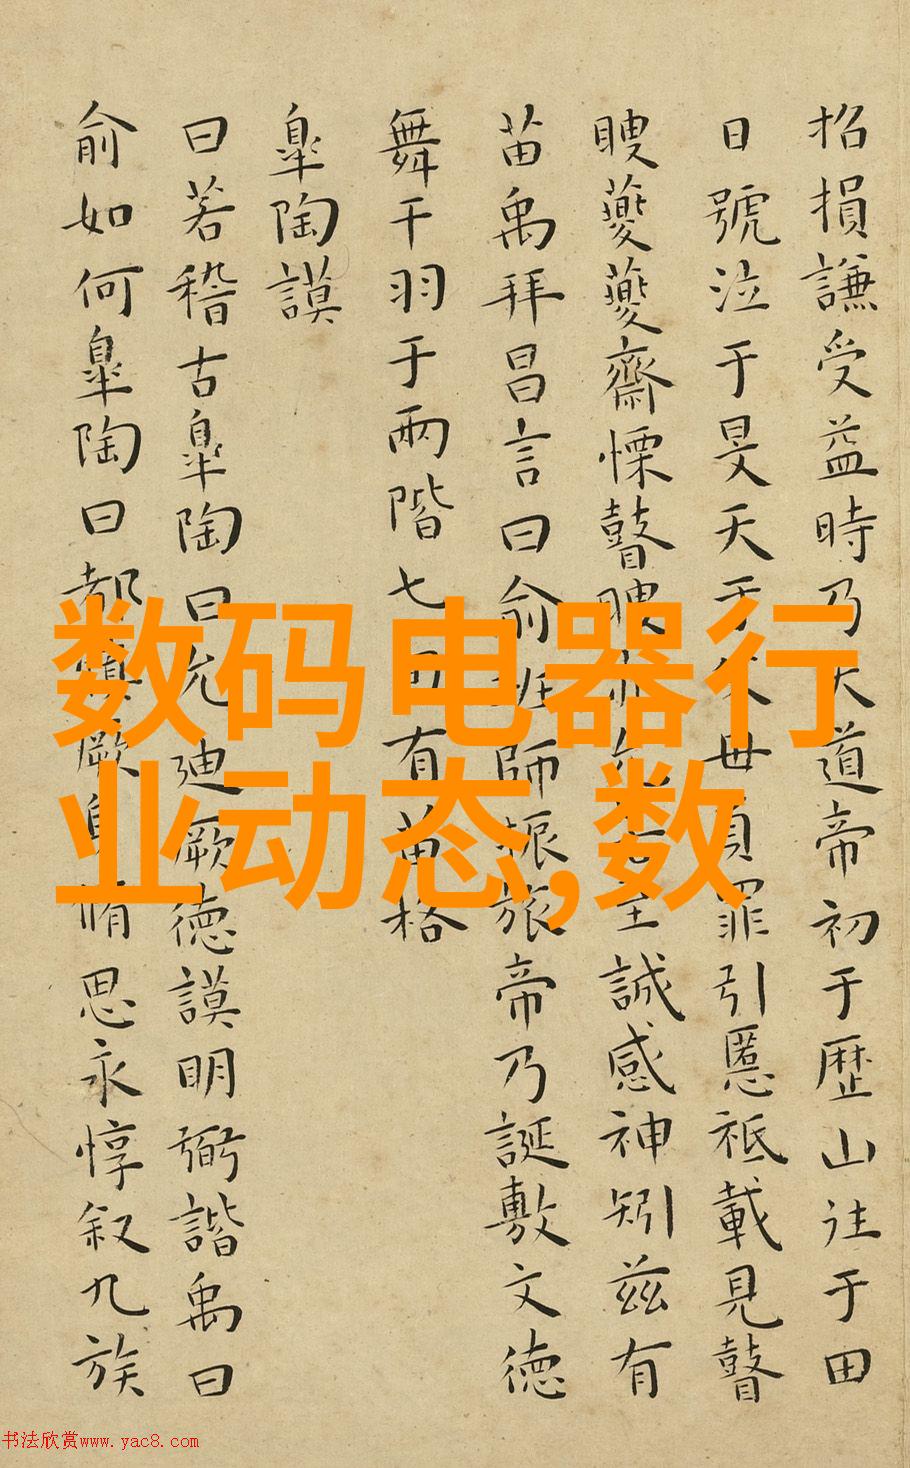 招損謙受益時乃天道帝初于歴山往于田
日號泣于旻天于父母負罪引慝祗載見瞽
瞍夔夔齋慄瞽瞍亦允若至誠感神矧茲有
苗禹拜昌言曰俞班師振旅帝乃誕敷文德
舞干羽于兩階七旬有苗格
皐陶謨
曰若稽古皐陶曰允迪厥德謨明弼諧禹曰
俞如何皐陶曰都慎厥身脩思永惇叙九族
数码电器行
业动态,数
书法欣赏www.yac8.com